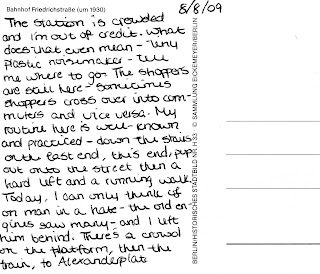 Bahnhof Friedrichstraße (um 1930)
8/8/09
The station is crowded
and i'm out of credit. What
does that even mean - tiny
plastic noisemaker - tell
me where to go. The shoppers
are still here - sometimes
shoppers cross over into com-
muters and vice versa. My
routine here is well-known
and practiced - down the stairs
on the east end, this end, pop
out onto the street then a
hard left and a running walk.
Today, I can only think of
on man in a hate - the old en-
gines saw many - and I left
him behind. There's a crowd
on the platform, then the
train, to Alexanderplatz
BERLIN/HISTORISCHES STADTBILD NR. H 33 © SAMMLUNG EICKEMEYER/BERLIN